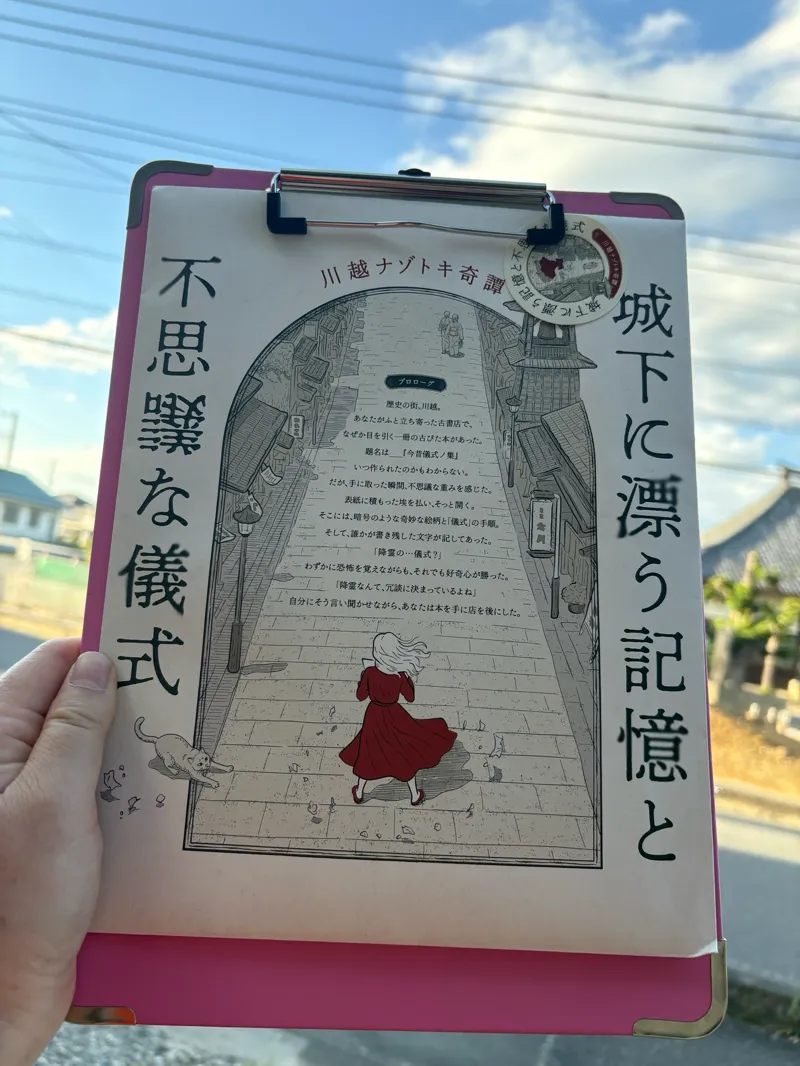 川越ナゾトキ奇譚
城下に漂う記憶と
不思議な儀式
城下に漂う記憶と不
川越ナゾトキ奇譚
プロローグ
歴史の街、川越。
あなたがふと立ち寄った古書店で、
なぜか目を引く一冊の古びた本があった。
題名は__『今昔儀式ノ集』
いつ作られたのかもわからない。
だが、手に取った瞬間、不思議な重みを感じた。
表紙に積もった埃を払い、そっと開く。
そこには、暗号のような奇妙な絵柄と「儀式」の手順。
そして、誰かが書き残した文字が記してあった。
「降霊の…儀式?」
わずかに恐怖を覚えながらも、それでも好奇心が勝った。
「降霊なんて、冗談に決まっているよね」
自分にそう言い聞かせながら、あなたは本を手に店を後にした。